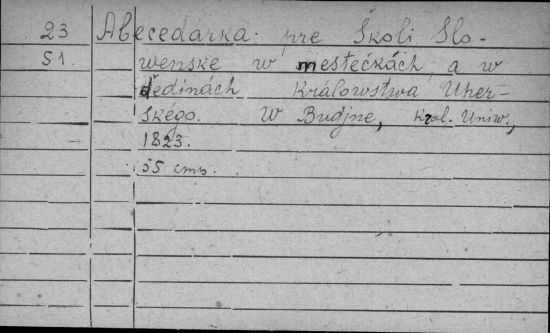 23 Abecedarka pre Školi Slo-
51 wenske w mestečkách a w
ďedinách Králowstwa Uher-
ského. W Budjne, Kral. Uniw.,
1823.
55 cms.